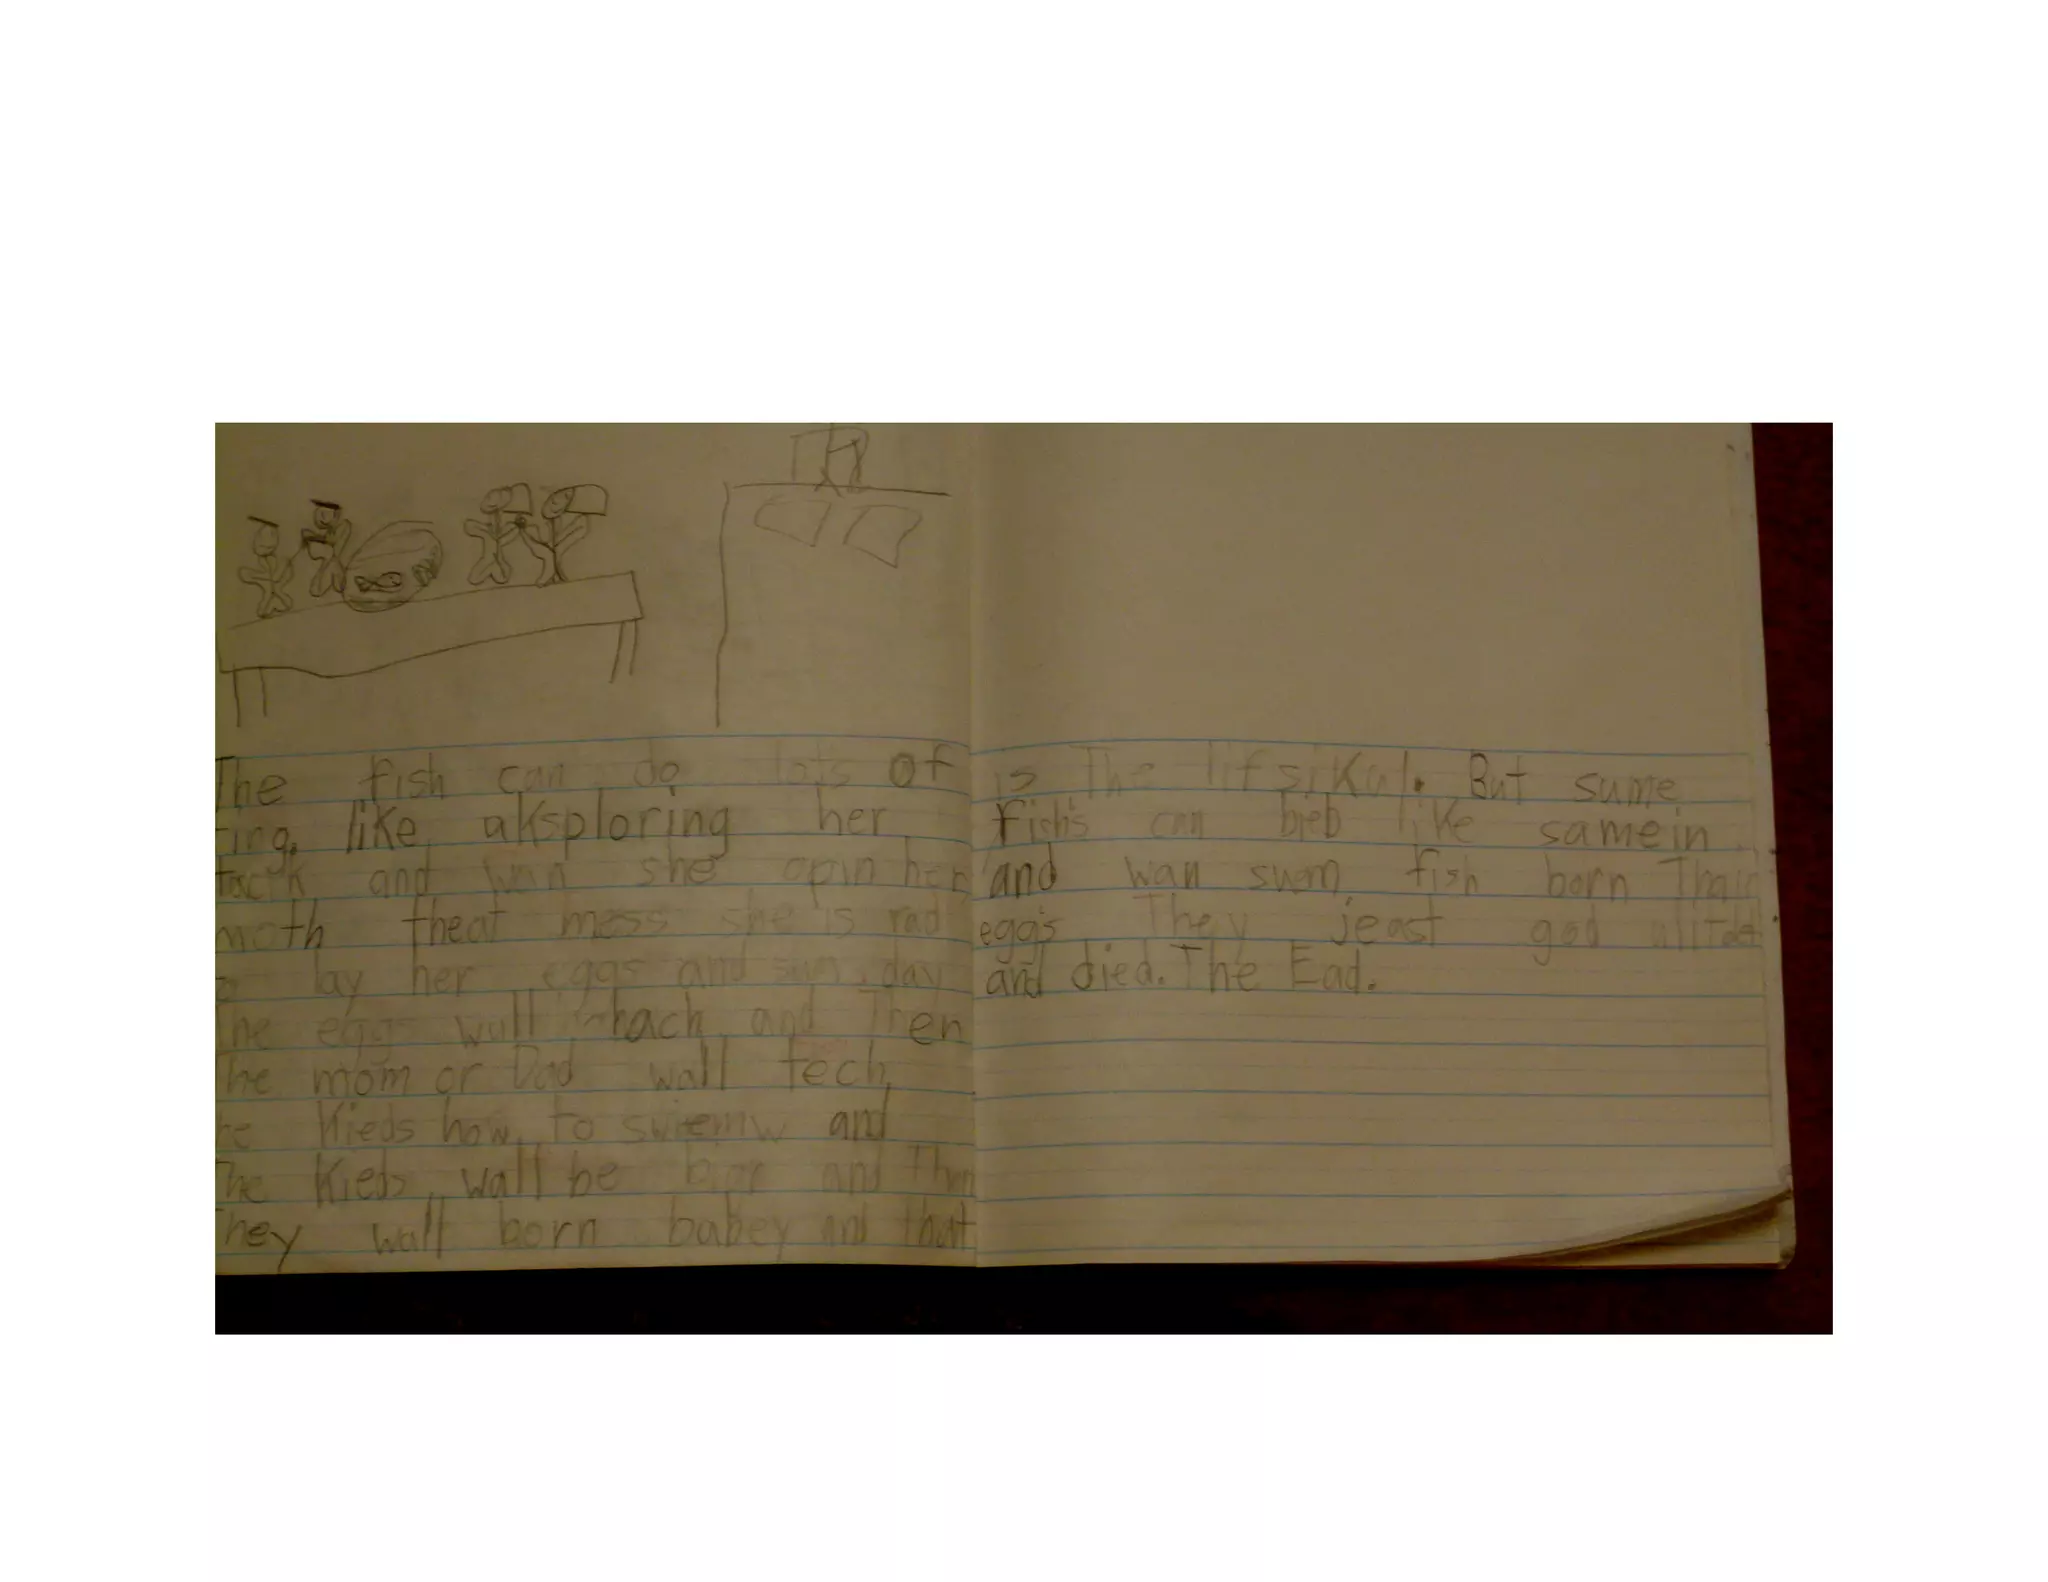 The fish can do lots of
ting. like aksploring her
tack and wan she opin her
moth theat mess she is rad
lay her eggs and sum day
The eggs wull hach and Then
The mom or Dad wall tech
he Kieds how to swiemw and
The Kieds wall be bigr and Then
They wall born babey and that
is The lifsikul. But sume
Fish's can bieb like samein
and wan sum fish born Thair
eggs They jeast god
and died. The Ead.